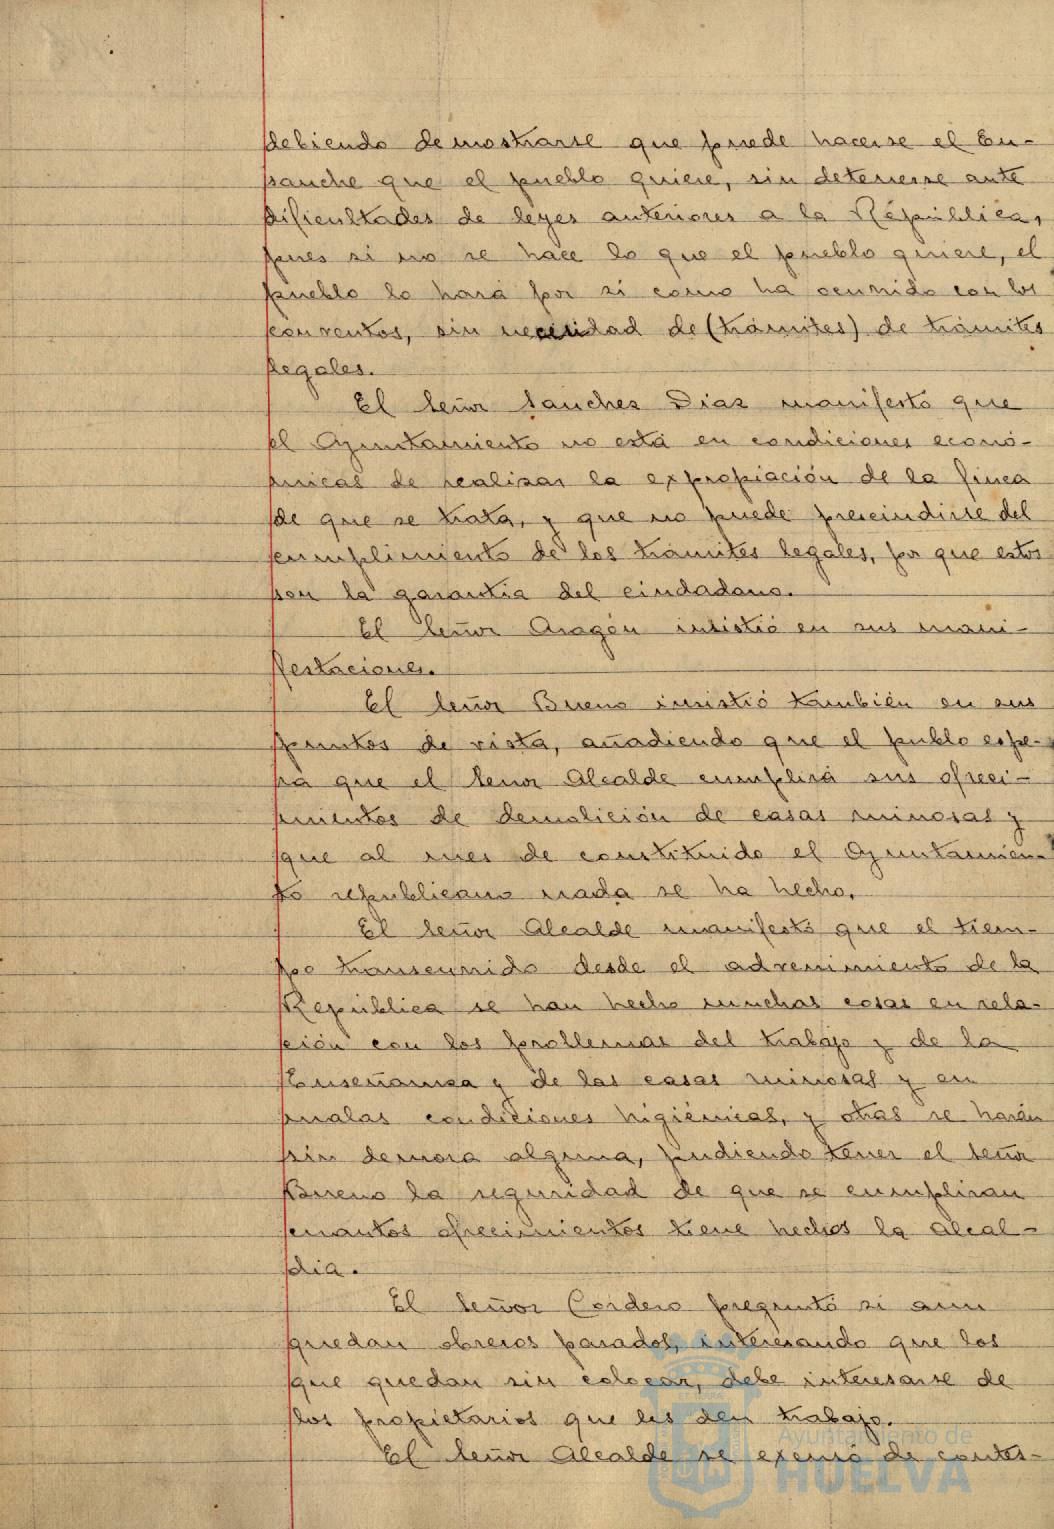 debiendo demostrarse que puede hacerse el En-
sanche que el pueblo quiere, sin detenerse ante
dificultades de leyes anteriores a la República,
pues si no se hace lo que el pueblo quiere, el
pueblo lo hará por si como ha ocurrido con los
conventos, sin necesidad de (trámites) de trámites
legales.
El Señor Sanchez Diaz manifestó que
el Ayuntamiento no está en condiciones econó-
micas de realizar la expropiación de la finca
de que se trata, y que no puede prescindirse del
cumplimiento de los trámites legales, por que estos
son la garantia del ciudadano.
El Señor Aragón insistió en sus mani-
festaciones.
El Señor Bueno insistió también en sus
puntos de vista, añadiendo que el pueblo espe-
ra que el Señor Alcalde cumplirá sus ofreci-
mientos de demolición de casas ruinosas y
que al mes de constituido el Ayuntamien-
to republicano nada se ha hecho.
El Señor Alcalde manifestó que el tiem-
po transcurrido desde el advenimiento de la
República se han hecho muchas cosas en rela-
ción con los problemas del trabajo y de la
Enseñanza y de las casas ruinosas y en
malas condiciones higiénicas, y otras se harán
sin demora alguna, pudiendo tener el Señor
Bueno la seguridad de que se cumpliran
cuantos ofrecimientos tiene hechos la Alcal-
dia.
El Señor Cordero preguntó si aun
quedan obreros parados, interesando que los
que quedan sin colocar, debe interesarse de
los propietarios que les den trabajo.
El Señor Alcalde se excusó de contes-
Ayuntamiento de
HUELVA